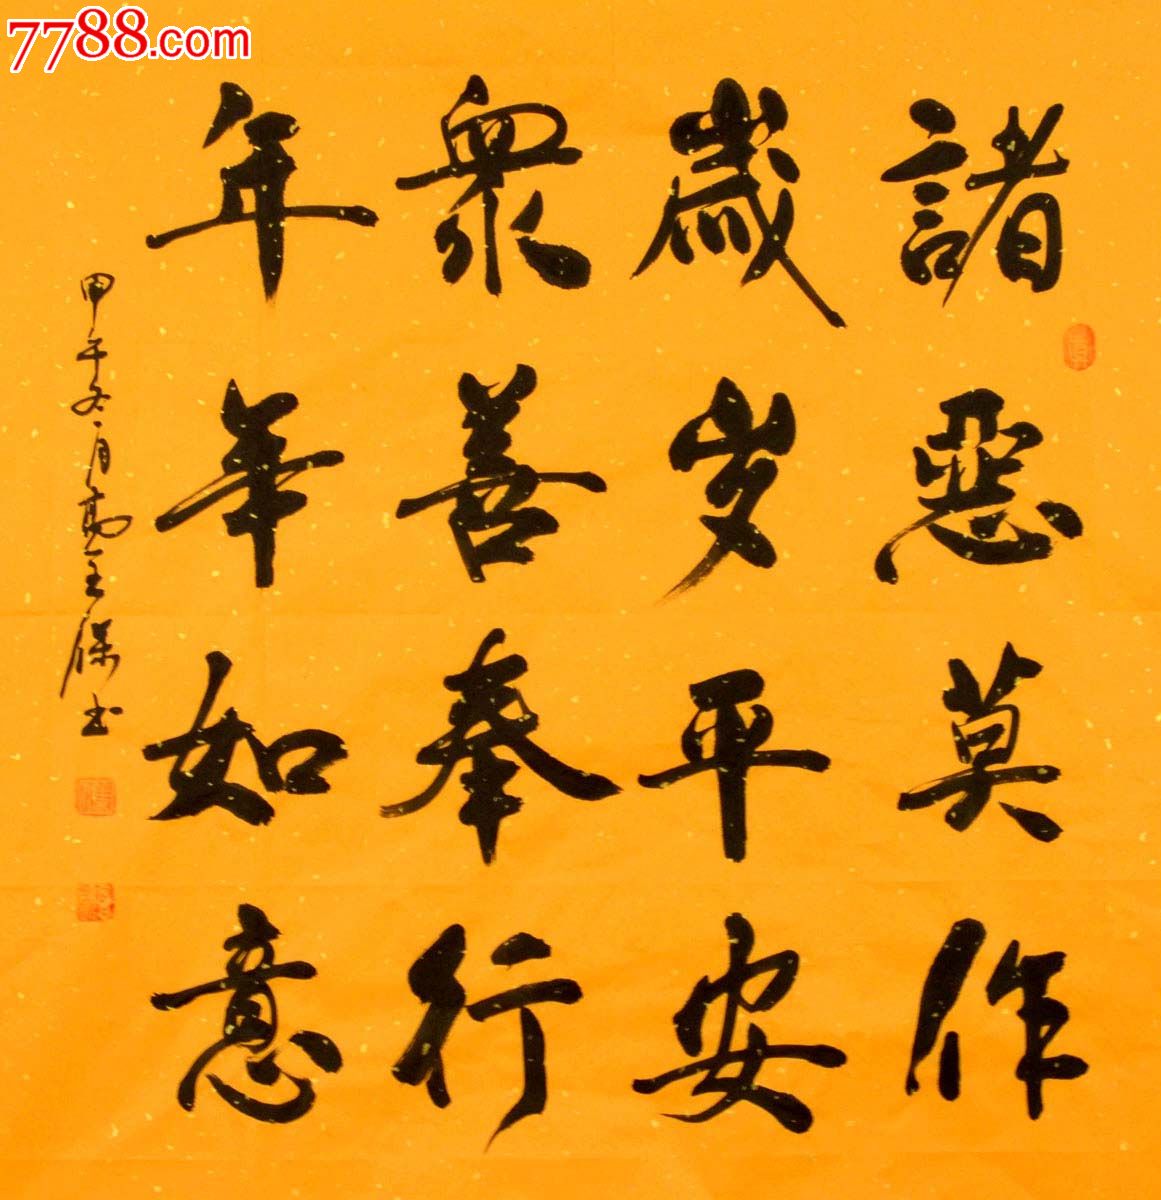 7788.com
諸惡莫作
歲岁平安
眾善奉行
年年如意
甲午冬月高全保书